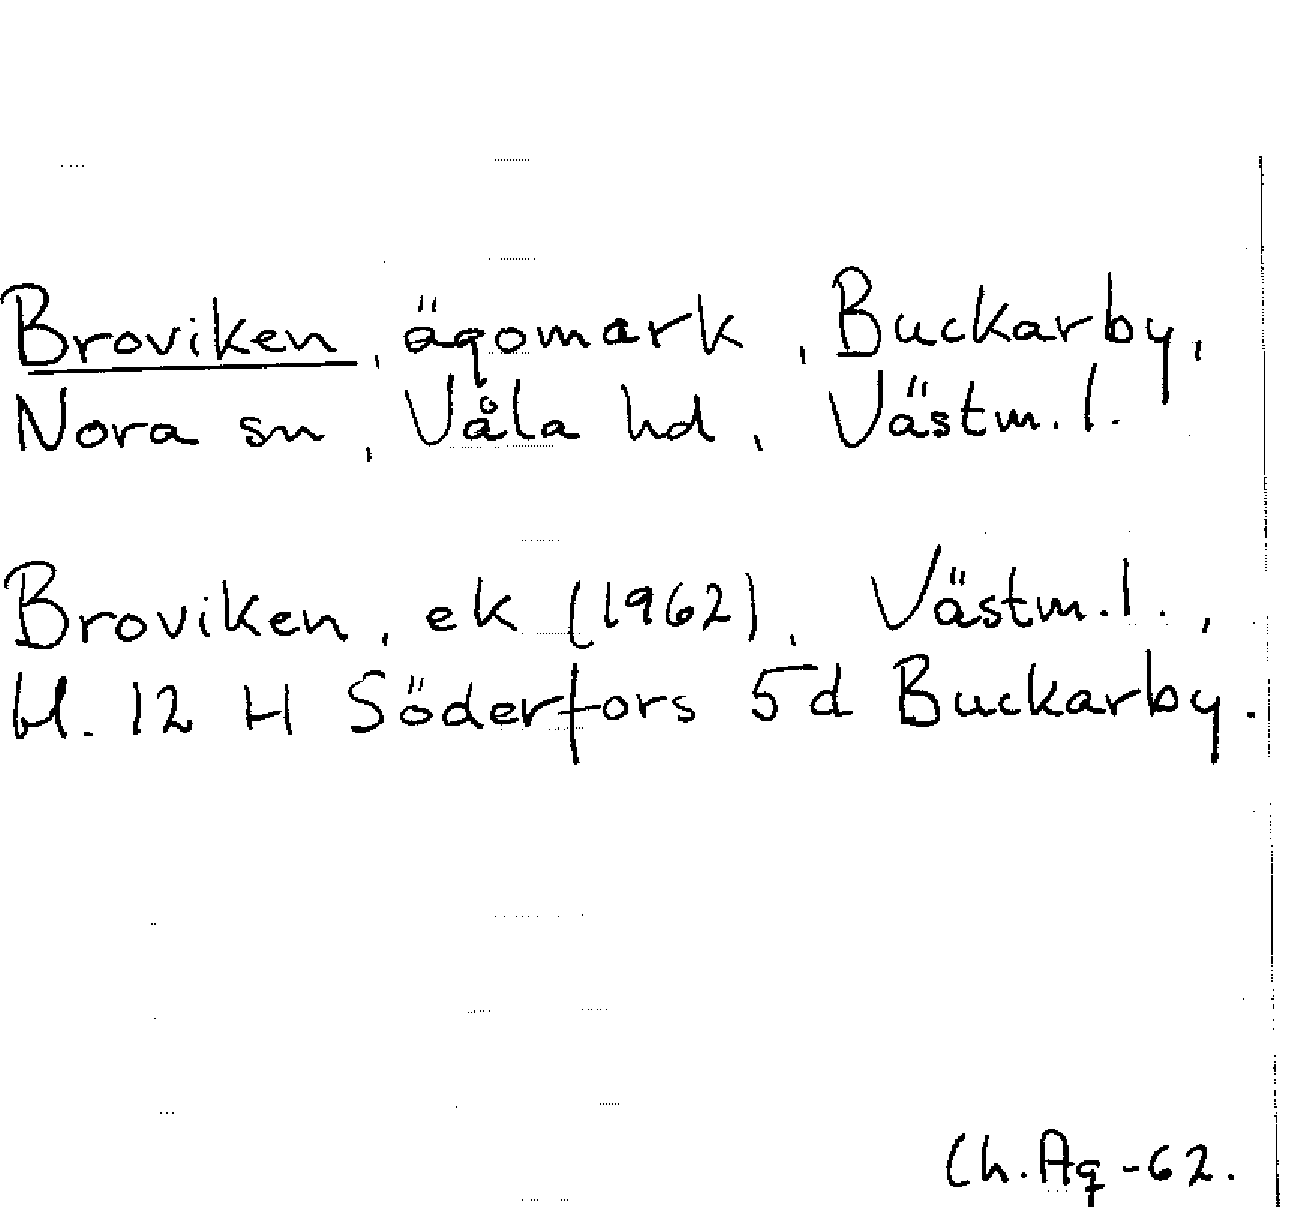 Broviken, ägomark, Buckarby,
Nora sn, Våla hd, Västm. l.
Broviken, ek (1962), Västm. l.,
bl. 12 H Söderfors 5d Buckarby.
Ch. Ag -62.